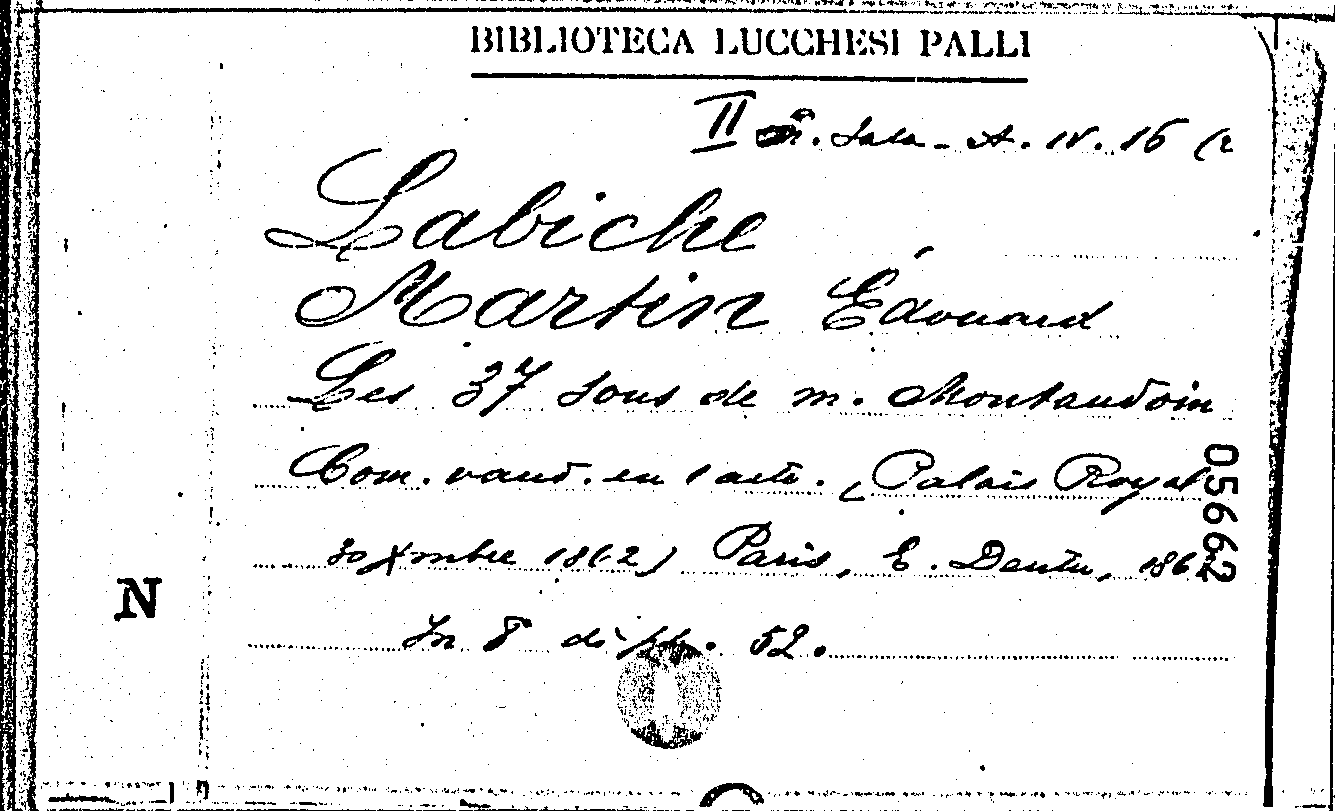 BIBLIOTECA LUCCHESI PALLI
II Sala - A. IV. 16 (2
Labiche
Martin Édouard
Les 37 sous de m. Montaudoin
Com. vaud. en 1 acte. (Palais Royal
30 Xmbre 1862) Paris, E. Dentu, 186
In 8° di pp. 52.
05662
N